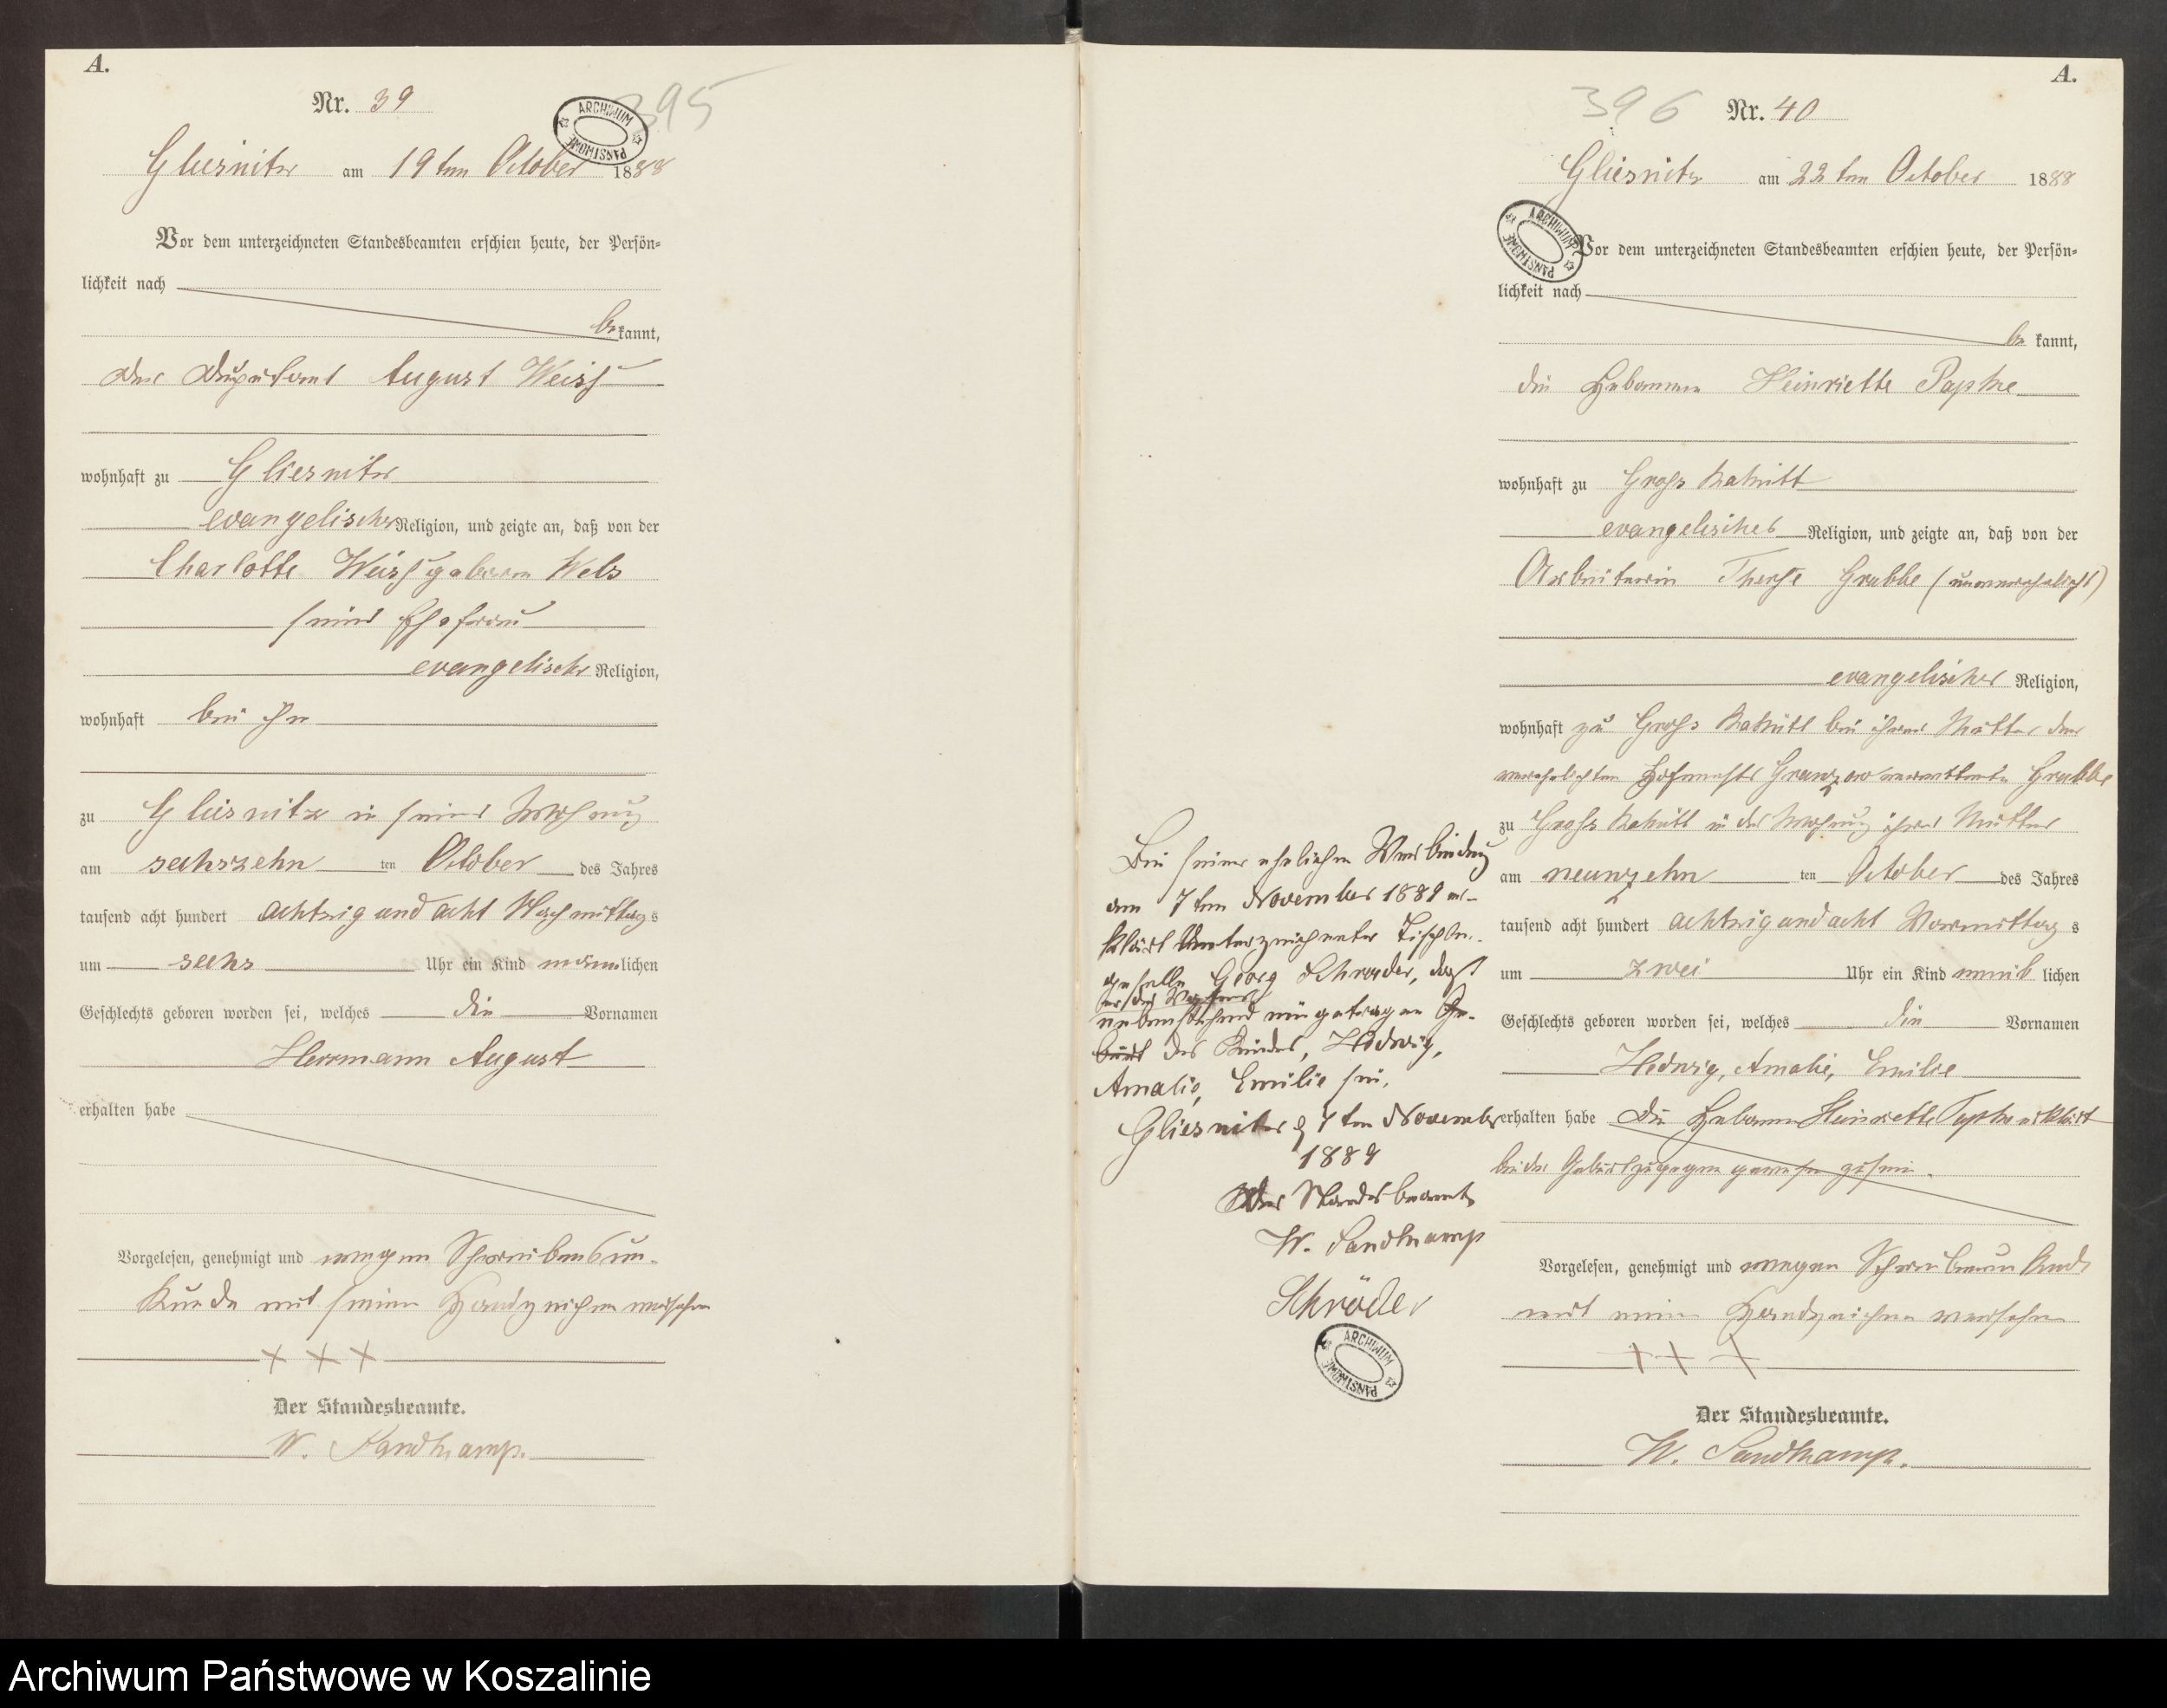 A.
Nr. 39
395
ARCHIWUM PAŃSTWOWE
Gliesnitz am 19ten October 1888
Vor dem unterzeichneten Standesbeamten erschien heute, der Persön-
lichkeit nach
bekannt,
der Deputant August Weiss
wohnhaft zu Gliesnitz
evangelischer Religion, und zeigte an, daß von der
Charlotte Weiss geboren Wels
seiner Ehefrau
evangelischer Religion,
wohnhaft bei ihm
zu Gliesnitz in seiner Wohnung
am sechszehn ten October des Jahres
tausend acht hundert achtzig und acht Nachmittags
um sechs Uhr ein Kind männlichen
Geschlechts geboren worden sei, welches die Vornamen
Herrmann August
erhalten habe
Vorgelesen, genehmigt und wegen Schreibensun-
kunde mit seinem Handzeichen versehen
+ + +
Der Standesbeamte.
W. Sandkamp.
A.
396
Nr. 40
Gliesnitz am 22ten October 1888
ARCHIWUM PAŃSTWOWE
Vor dem unterzeichneten Standesbeamten erschien heute, der Persön-
lichkeit nach
be kannt,
die Hebamme Heinriette
wohnhaft zu Gross
evangelischer Religion, und zeigte an, daß von der
Arbeiterin Therese Grubbe (unverehelicht)
evangelischer Religion,
wohnhaft zu Gross bei ihrer Mutter der
verehelichten Granzow verwittwete Grubbe
zu Gross in der Wohnung ihrer Mutter
am neunzehn ten October des Jahres
tausend acht hundert achtzig und acht Vormittags
um zwei Uhr ein Kind weib lichen
Geschlechts geboren worden sei, welches die Vornamen
Hedwig, Amalie, Emilie
erhalten habe Die Hebamme Heinriette erklärt
bei der Geburt zugegen gewesen zu sein.
Vorgelesen, genehmigt und wegen Schreibensunkunde
mit Handzeichen versehen
+ + +
Der Standesbeamte.
W. Sandkamp.
Bei seiner ehelichen Verbindung
am 7ten November 1889 er-
klärt Unterzeichneter Tischler-
geselle Georg Schroeder, dass
er der Vater
nebenstehend eingetragenen Ge-
burt des Kindes, Hedwig,
Amalie, Emilie sei.
Gliesnitz d 7ten November
1889
Der Standesbeamte
W. Sandkamp
Schröder
ARCHIWUM PAŃSTWOWE
Archiwum Państwowe w Koszalinie